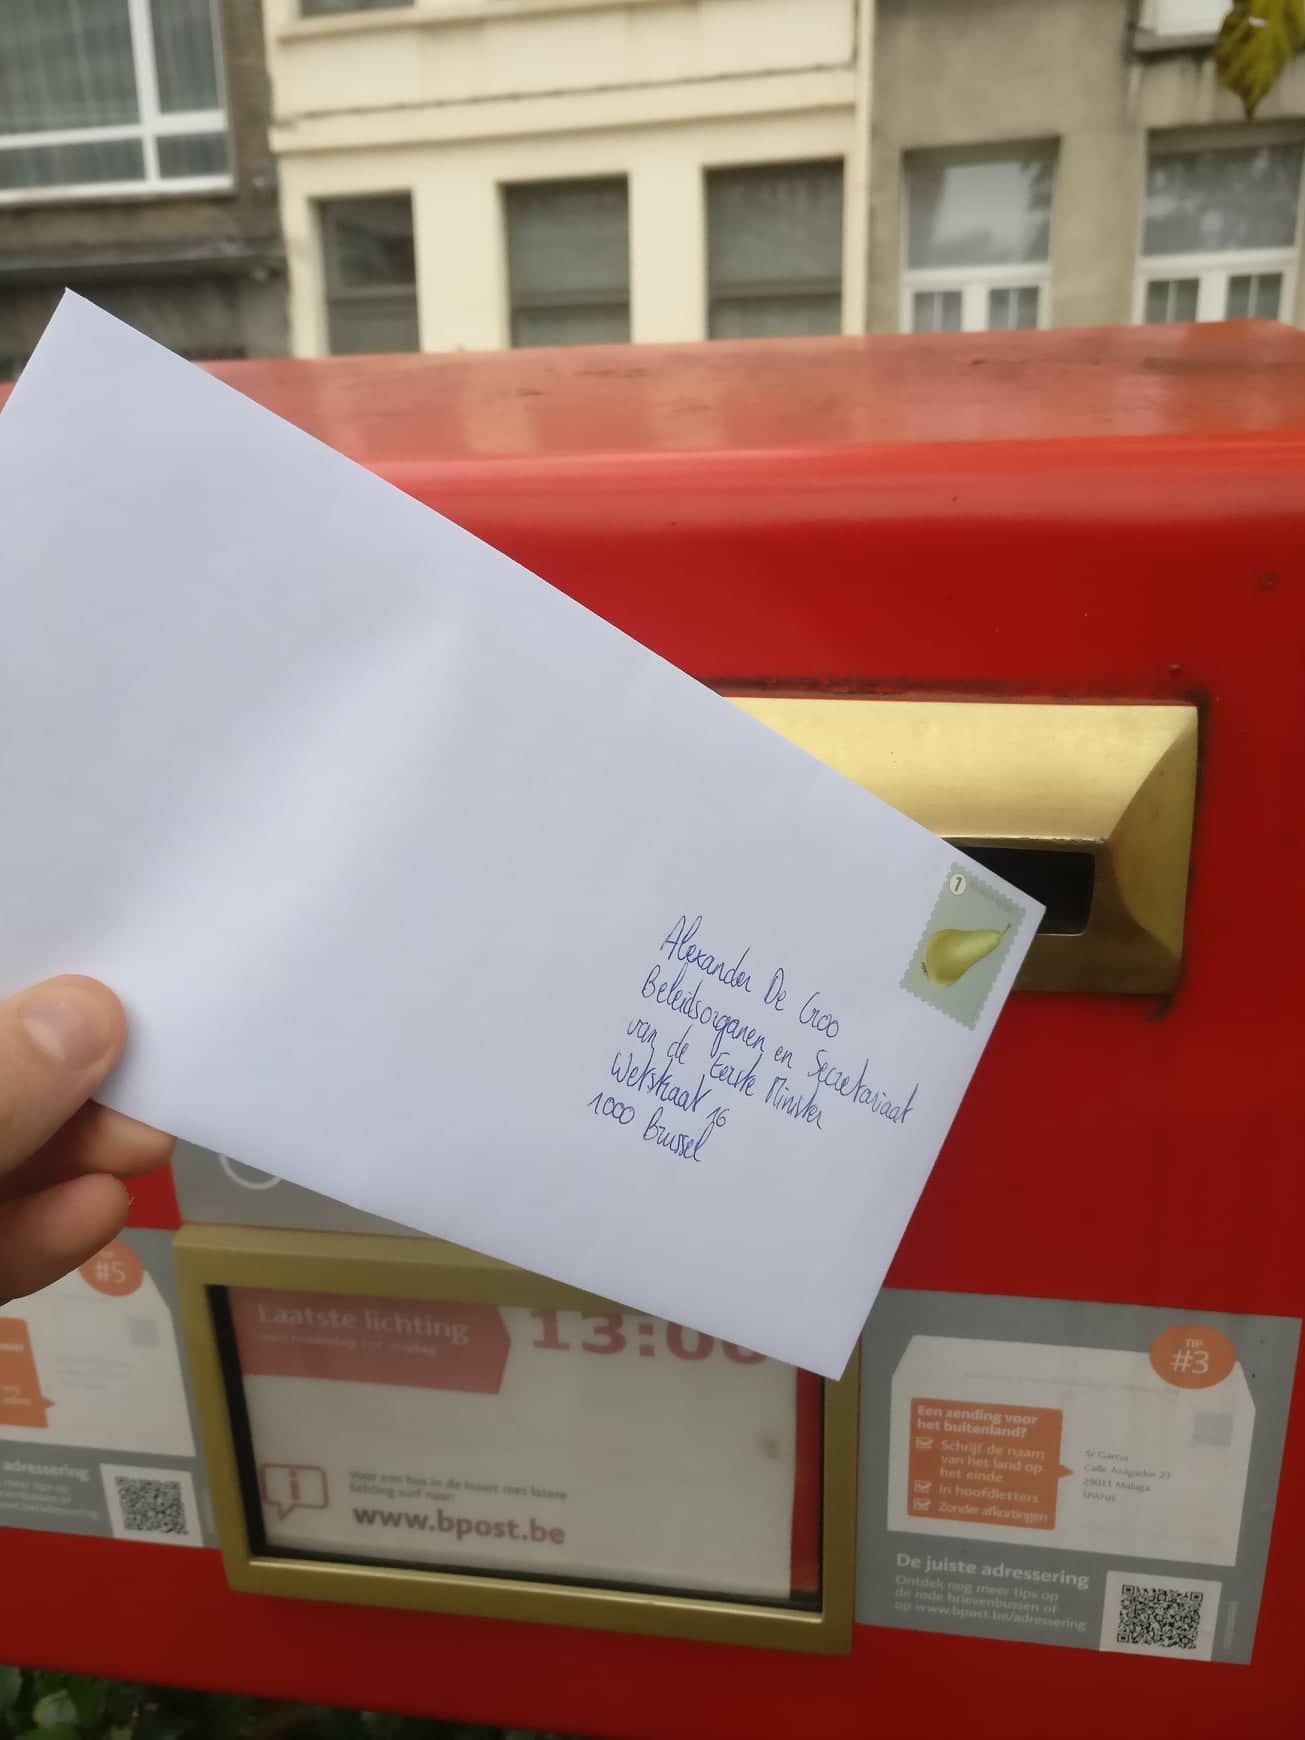 1
Alexander De Croo
Beleidsorganen en Secretariaat
van de Eerste Minister
Wetstraat 16
1000 Brussel
#5
adressering
Laatste lichting
13:00
Voor een bus in de buurt met latere
lichting surf naar:
www.bpost.be
TIP
#3
Een zending voor
het buitenland?
Schrijf de naam
van het land op
het einde
In hoofdletters
Zonder afkortingen
Sr Garcia
29011 Malaga
De juiste adressering
Ontdek nog meer tips op
de rode brievenbussen of
op www.bpost.be/adressering